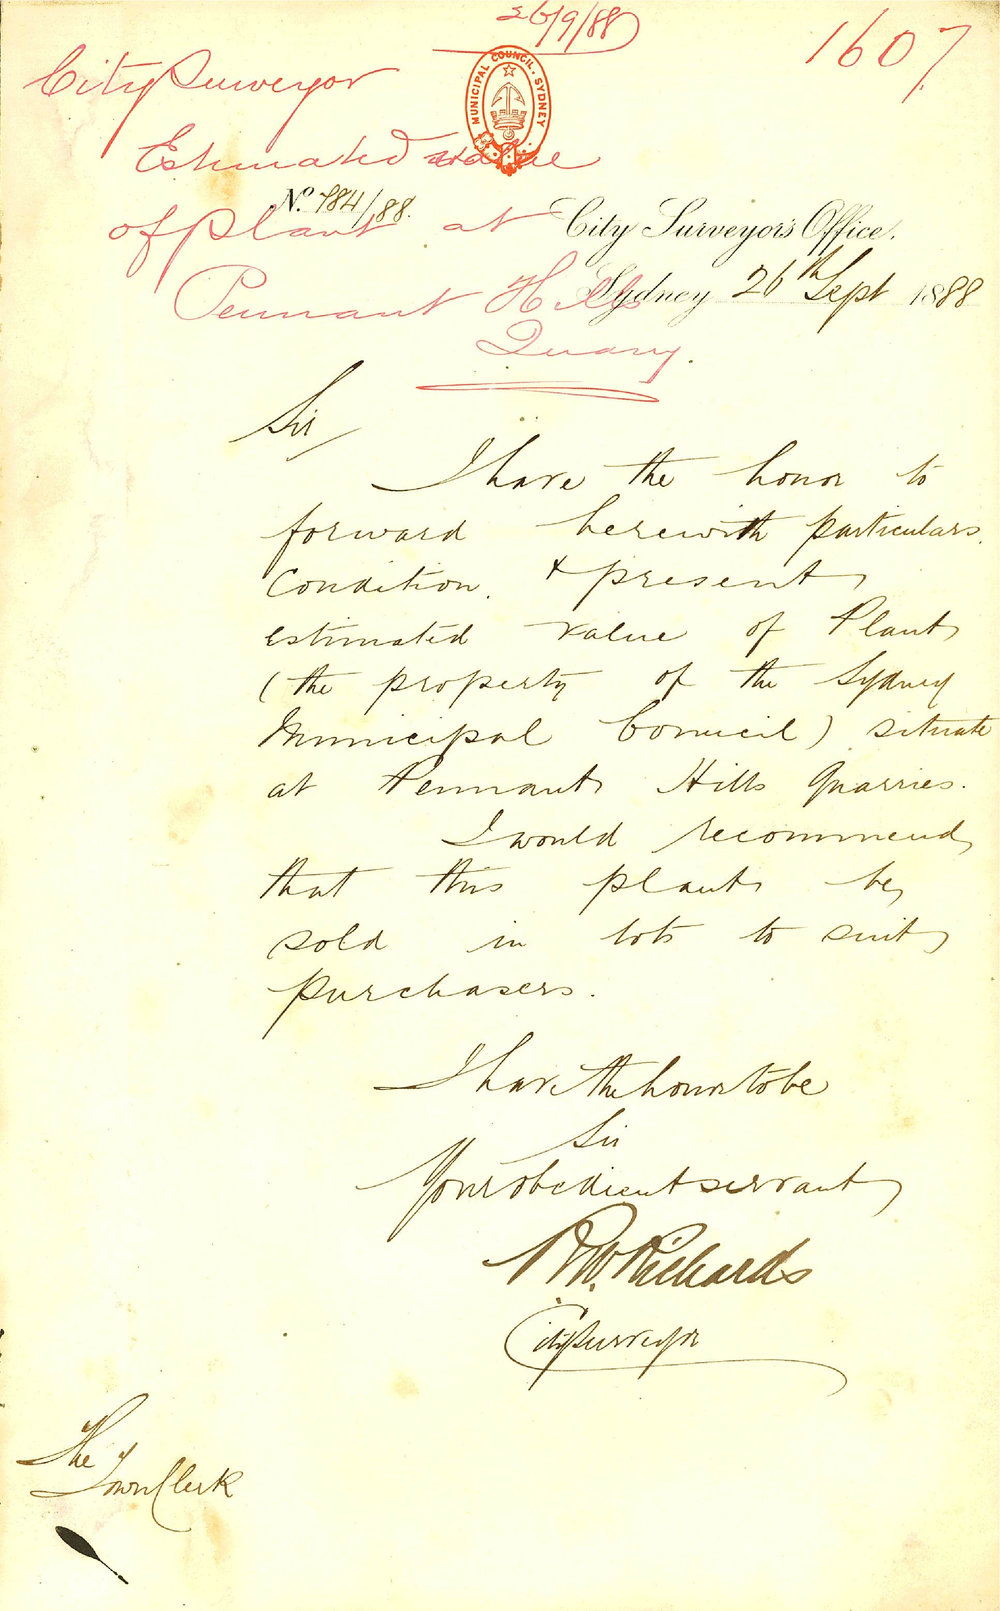 26/9/88
1607
City Surveyor
MUNICIPAL COUNCIL. SYDNEY
Estimated value
No. 784/88.
of plant at
City Surveyor's Office.
Pennant Hills
Sydney 26th Sept 1888
Quarry.
Sir
I have the honor to
forward herewith particulars.
Condition. & present
estimated value of Plant
(the property of the Sydney
Municipal Council) situate
at Pennant Hills Quarries.
I would recommend
that this plant be
sold in lots to suit
purchasers.
I have the honor to be
Sir
Your obedient servant
R.W. Richards
City Surveyor
The
Town Clerk